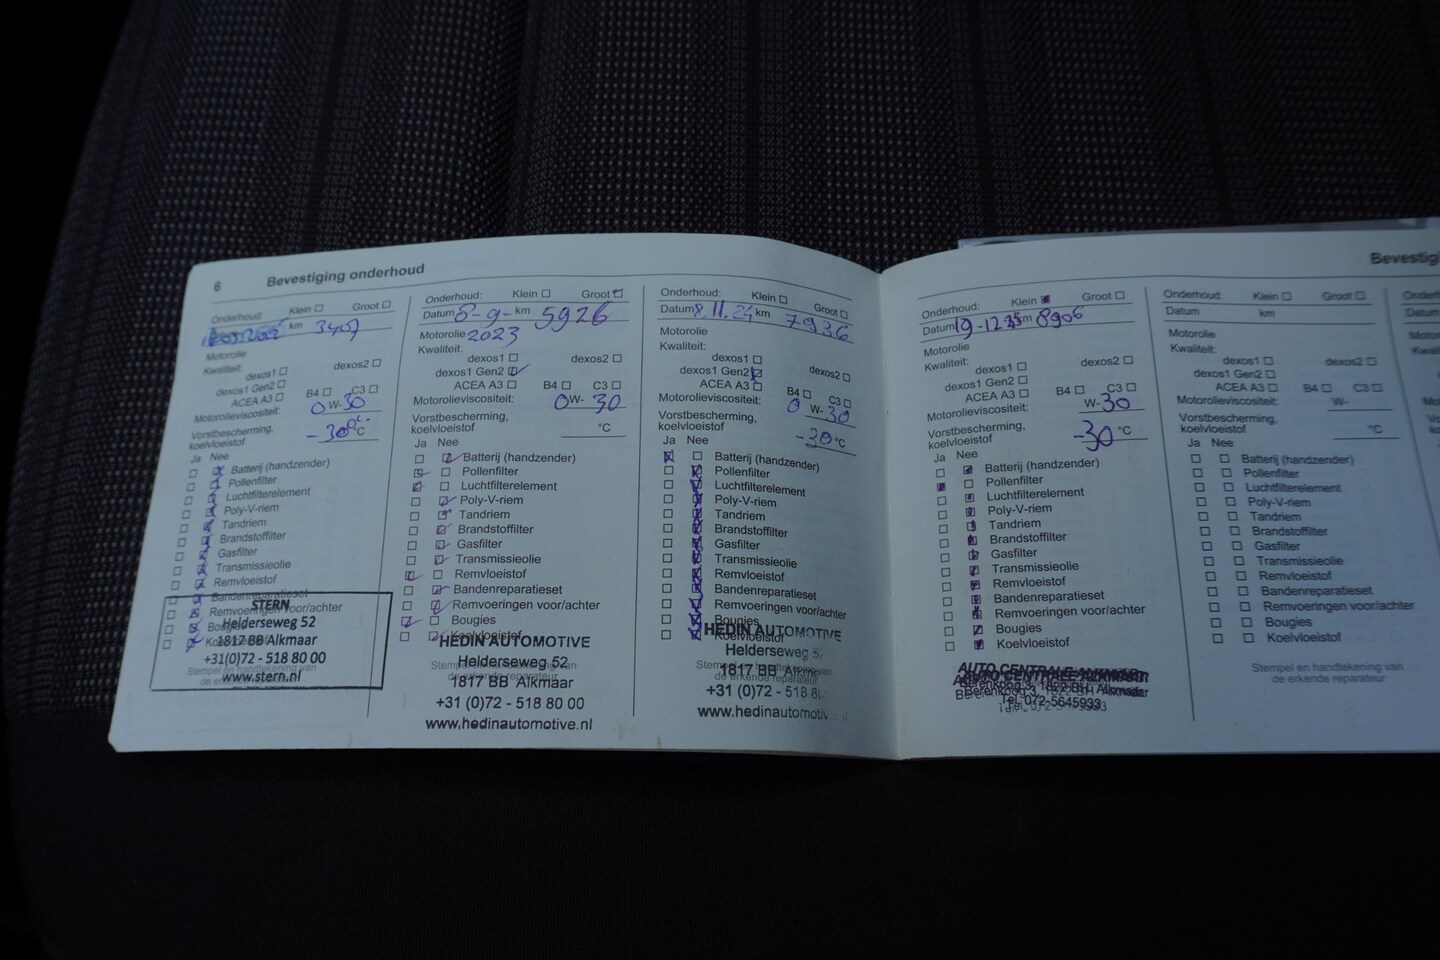 6 Bevestiging onderhoud
Onderhoud: Klein Groot
km 3407
Motorolie
Kwaliteit:
dexos1 dexos2
dexos1 Gen2
ACEA A3 B4 C3
Motorolieviscositeit: 0W-30
Vorstbescherming,
koelvloeistof -30 °C
Ja Nee
Batterij (handzender)
Pollenfilter
Luchtfilterelement
Poly-V-riem
Tandriem
Brandstoffilter
Gasfilter
Transmissieolie
Remvloeistof
Bandenreparatieset
Remvoeringen voor/achter
Bougies
Koelvloeistof
Stempel en handtekening van
de erkende reparateur
STERN
Helderseweg 52
1817 BB Alkmaar
+31(0)72 - 518 80 00
www.stern.nl
Onderhoud: Klein Groot
Datum 8-9- km 5926
Motorolie 2023
Kwaliteit:
dexos1 dexos2
dexos1 Gen2
ACEA A3 B4 C3
Motorolieviscositeit: 0W-30
Vorstbescherming,
koelvloeistof °C
Ja Nee
Batterij (handzender)
Pollenfilter
Luchtfilterelement
Poly-V-riem
Tandriem
Brandstoffilter
Gasfilter
Transmissieolie
Remvloeistof
Bandenreparatieset
Remvoeringen voor/achter
Bougies
Koelvloeistof
Stempel en handtekening van
de erkende reparateur
HEDIN AUTOMOTIVE
Helderseweg 52
1817 BB Alkmaar
+31 (0)72 - 518 80 00
www.hedinautomotive.nl
Onderhoud: Klein Groot
Datum 8.11.24 km 7936
Motorolie
Kwaliteit:
dexos1 dexos2
dexos1 Gen2
ACEA A3 B4 C3
Motorolieviscositeit: 0W-30
Vorstbescherming,
koelvloeistof -30 °C
Ja Nee
Batterij (handzender)
Pollenfilter
Luchtfilterelement
Poly-V-riem
Tandriem
Brandstoffilter
Gasfilter
Transmissieolie
Remvloeistof
Bandenreparatieset
Remvoeringen voor/achter
Bougies
Koelvloeistof
de erkende reparateur
HEDIN AUTOMOTIVE
Helderseweg 5
1817 BB Alkmaar
+31 (0)72 - 518 8
www.hedinautomotiv
Onderhoud: Klein Groot
Datum 19-12-25 km 8906
Motorolie
Kwaliteit:
dexos1 dexos2
dexos1 Gen2
ACEA A3 B4 C3
Motorolieviscositeit: W-30
Vorstbescherming,
koelvloeistof -30 °C
Ja Nee
Batterij (handzender)
Pollenfilter
Luchtfilterelement
Poly-V-riem
Tandriem
Brandstoffilter
Gasfilter
Transmissieolie
Remvloeistof
Bandenreparatieset
Remvoeringen voor/achter
Bougies
Koelvloeistof
AUTO CENTRALE ALKMAAR
Tel. 072-5645933
Bevestig
Onderhoud: Klein Groot
Datum km
Motorolie
Kwaliteit:
dexos1 dexos2
dexos1 Gen2
ACEA A3 B4 C3
Motorolieviscositeit: W-
Vorstbescherming,
koelvloeistof °C
Ja Nee
Batterij (handzender)
Pollenfilter
Luchtfilterelement
Poly-V-riem
Tandriem
Brandstoffilter
Gasfilter
Transmissieolie
Remvloeistof
Bandenreparatieset
Remvoeringen voor/achter
Bougies
Koelvloeistof
Stempel en handtekening van
de erkende reparateur